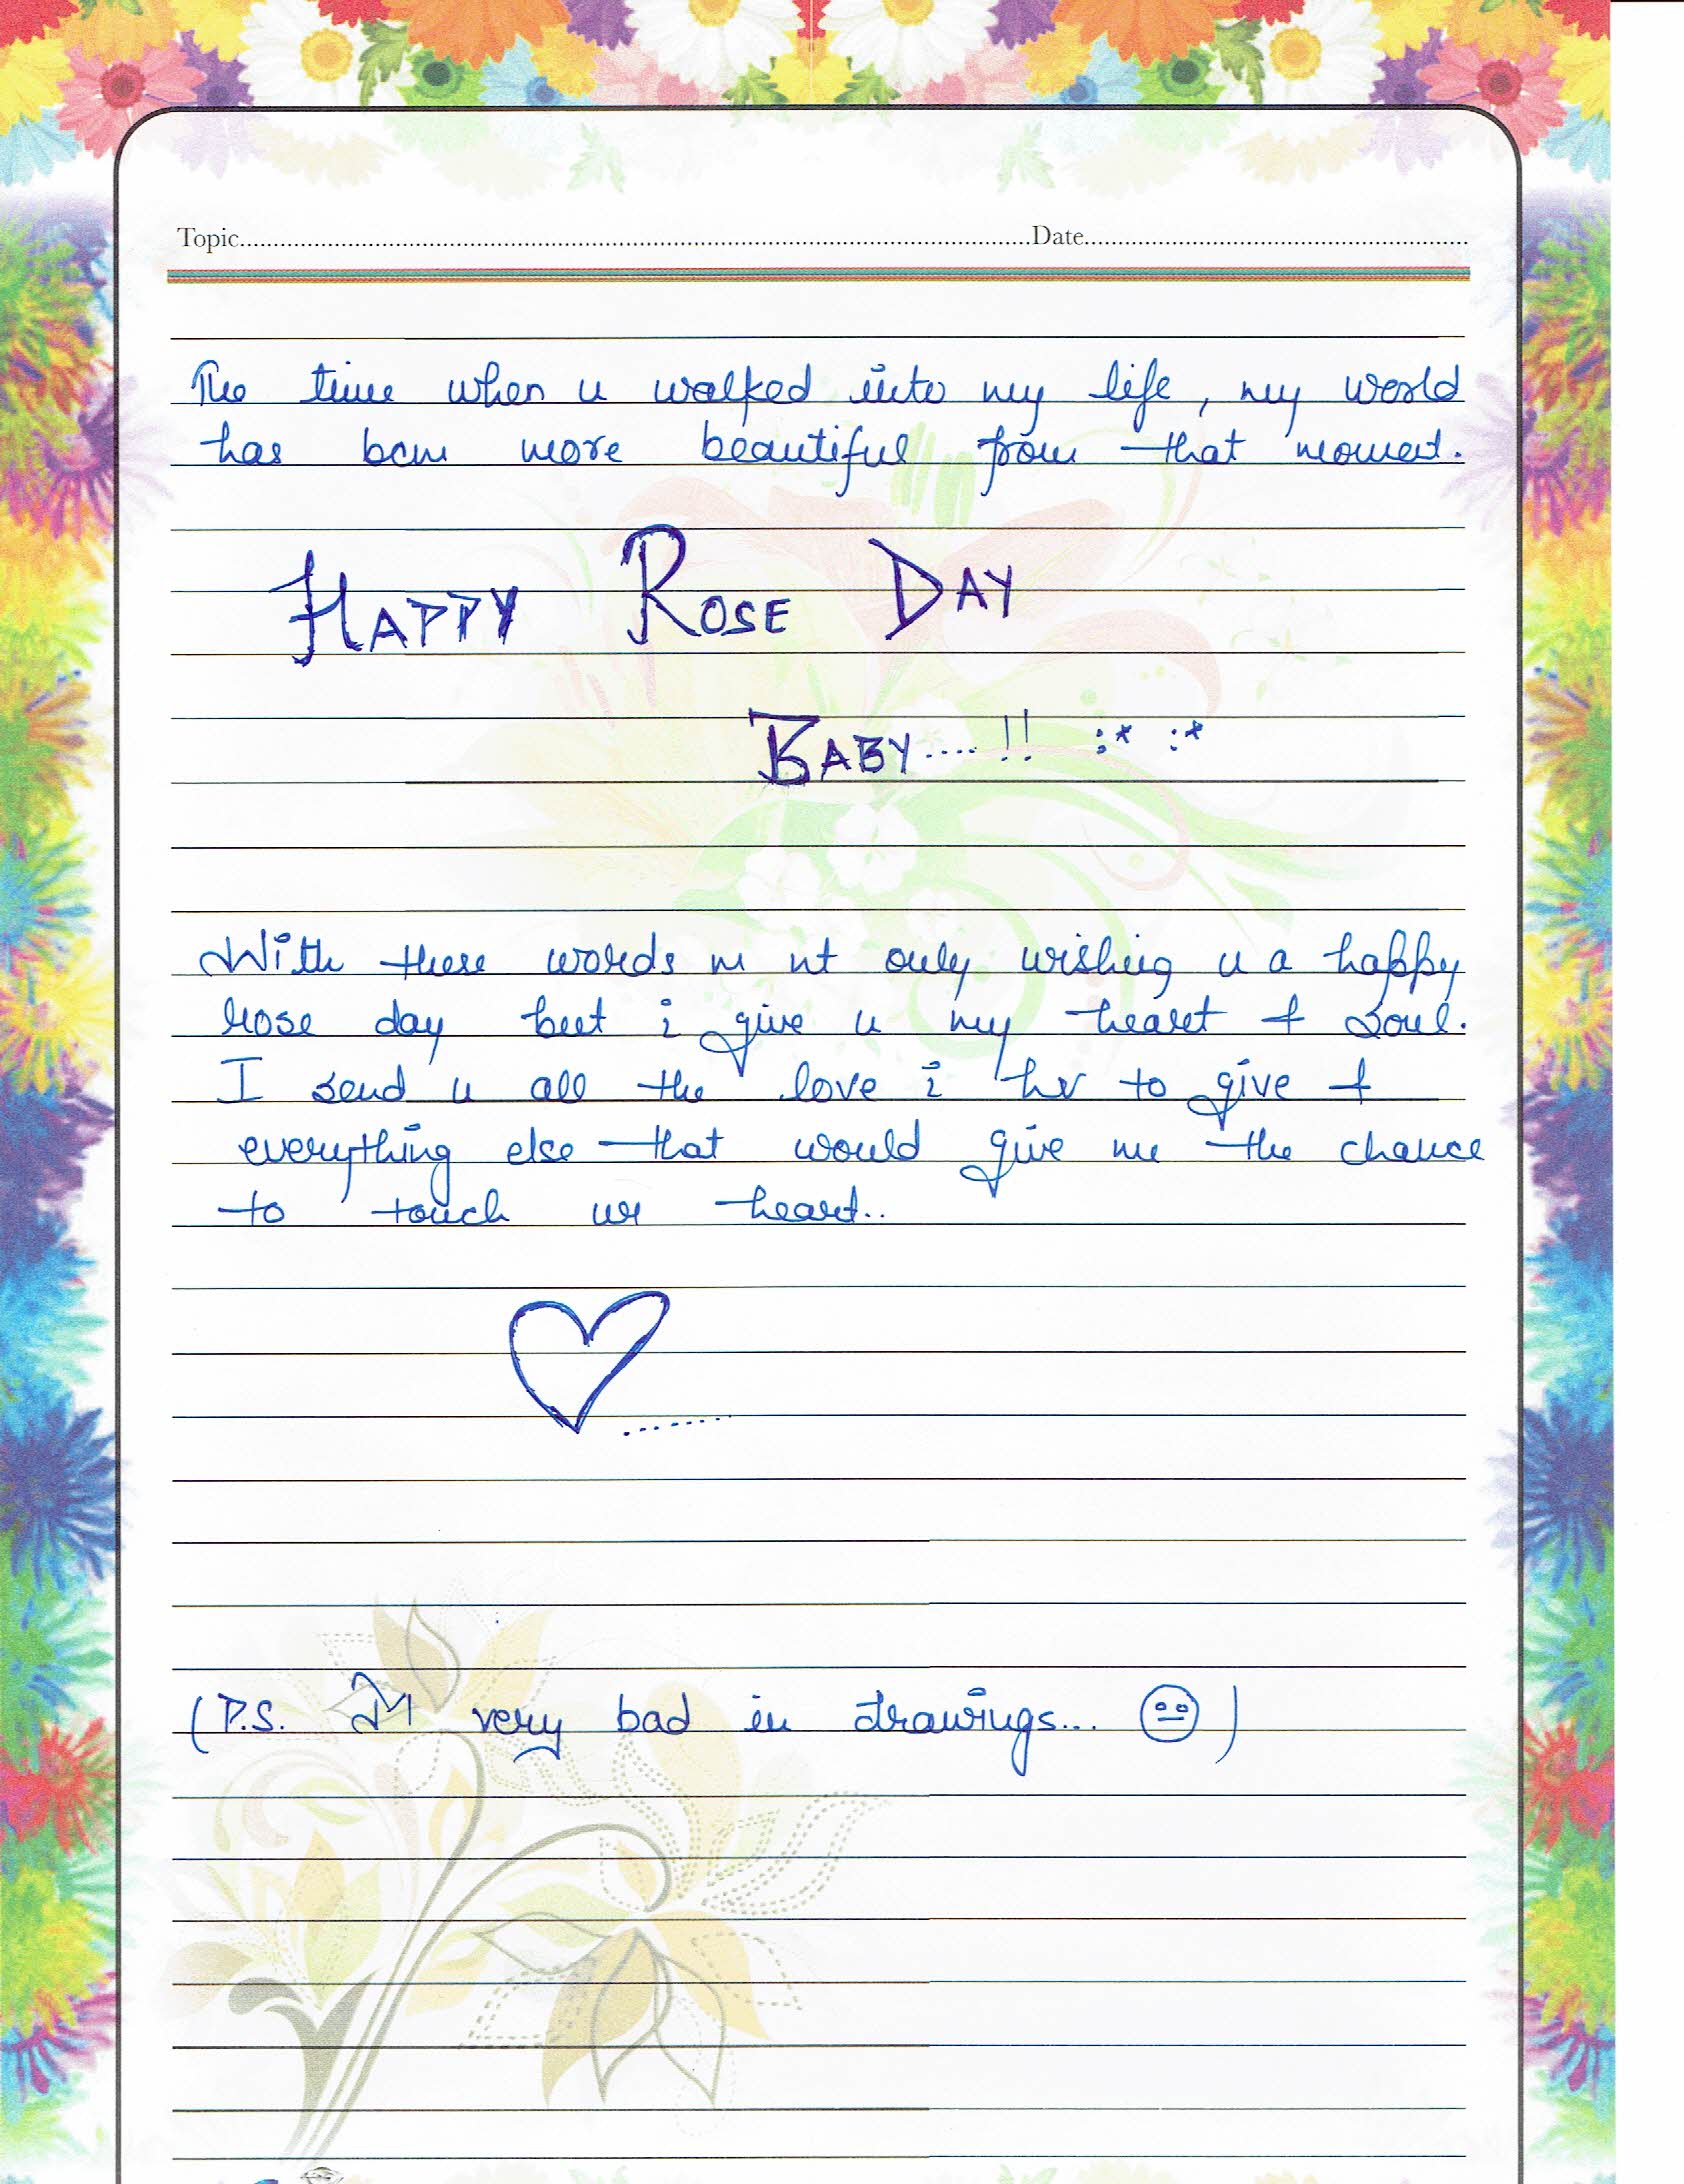 Topic.......................Date.......................
The time when u walked into my life, my world
has bcm more beautiful from that moment.
HAPPY ROSE DAY
BABY....!! :* :*
With these words m nt only wishing u a happy
rose day but i give u my heart & soul.
I send u all the love i hv to give &
everything else that would give me the chance
to touch ur heart..
.......
(P.S. I'M very bad in drawings...)